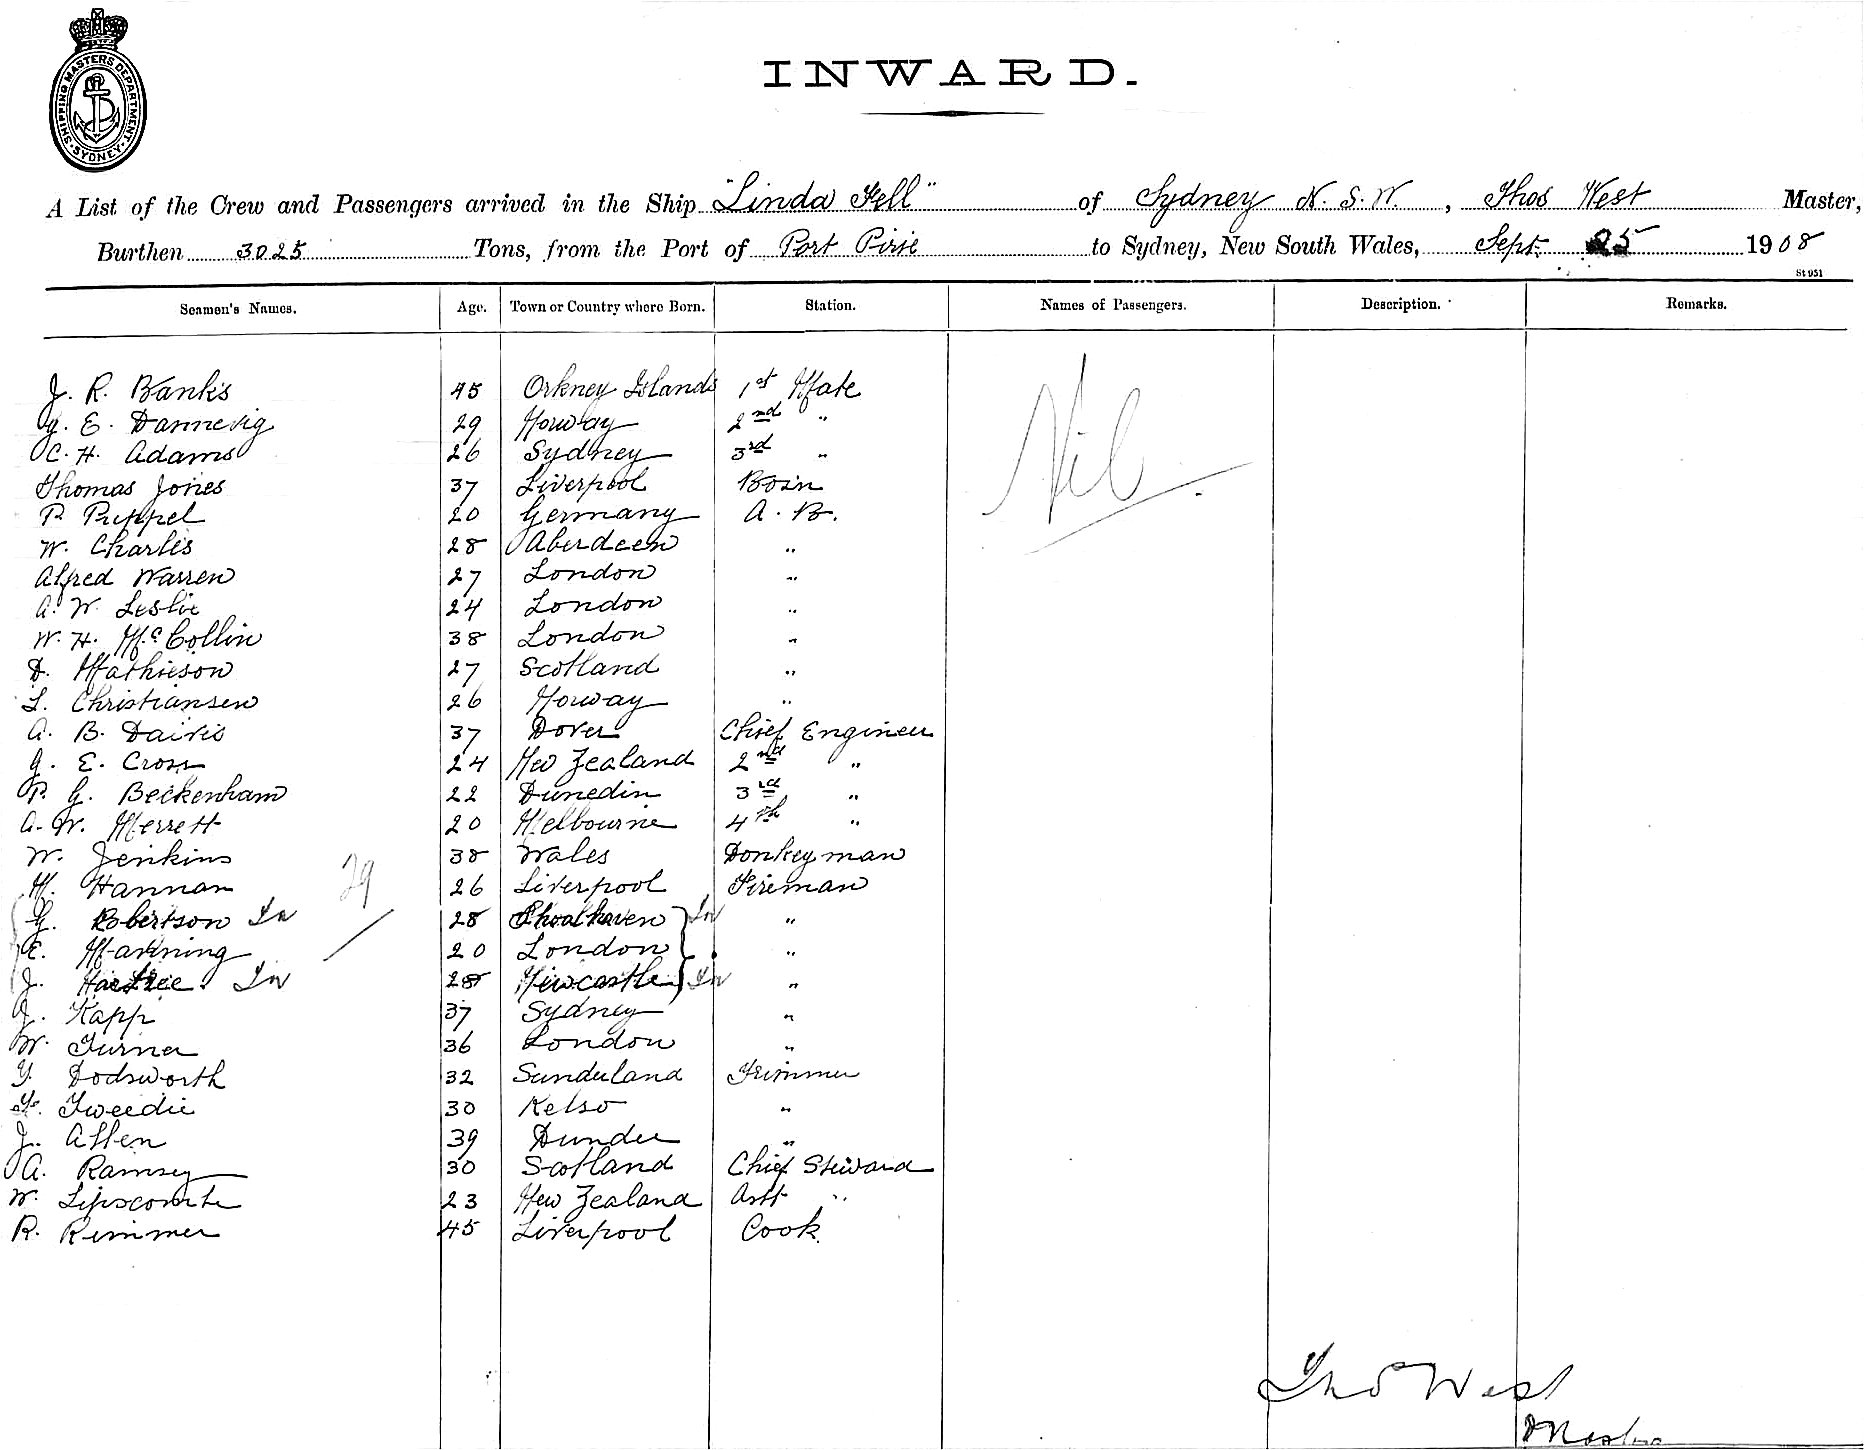 SHIPPING MASTERS DEPARTMENT
SYDNEY
INWARD.
A List of the Crew and Passengers arrived in the Ship "Linda Fell" of Sydney N.S.W., Thos West Master,
Burthen 3025 Tons, from the Port of Port Pirie to Sydney, New South Wales, Sept. 25 1908
St 951
Seamen's Names. Age. Town or Country where Born. Station. Names of Passengers. Description. Remarks.
J. R. Banks 45 Orkney Islands 1st Mate
G. E. Dannevig 29 Norway 2nd "
C. H. Adams 26 Sydney 3rd "
Nil.
Thomas Jones 37 Liverpool Bos'n
P. Puppel 20 Germany A.B.
W. Charles 28 Aberdeen "
Alfred Warren 27 London "
A. W. Leslie 24 London "
W. H. McCollin 38 London "
D. Mathieson 27 Scotland "
L. Christiansen 26 Norway "
A. B. Davies 37 Dover Chief Engineer
G. E. Cross 24 New Zealand 2nd "
P. G. Beckenham 22 Dunedin 3rd "
A. W. Merrett 20 Melbourne 4th "
W. Jenkins 38 Wales Donkeyman
29
M. Hannan 26 Liverpool Fireman
G. Robertson In 28 Shoalhaven In "
E. Manning 20 London "
J. In 28 Newcastle In "
J. Kapp 37 Sydney "
W. Turner 36 London "
Dodsworth 32 Sunderland Trimmer
Tweedie 30 Kelso "
J. Allen 39 Dundee "
A. Ramsey 30 Scotland Chief Steward
W. Lipscombe 23 New Zealand Asst "
R. Rimmer 45 Liverpool Cook.
Thos West
Master